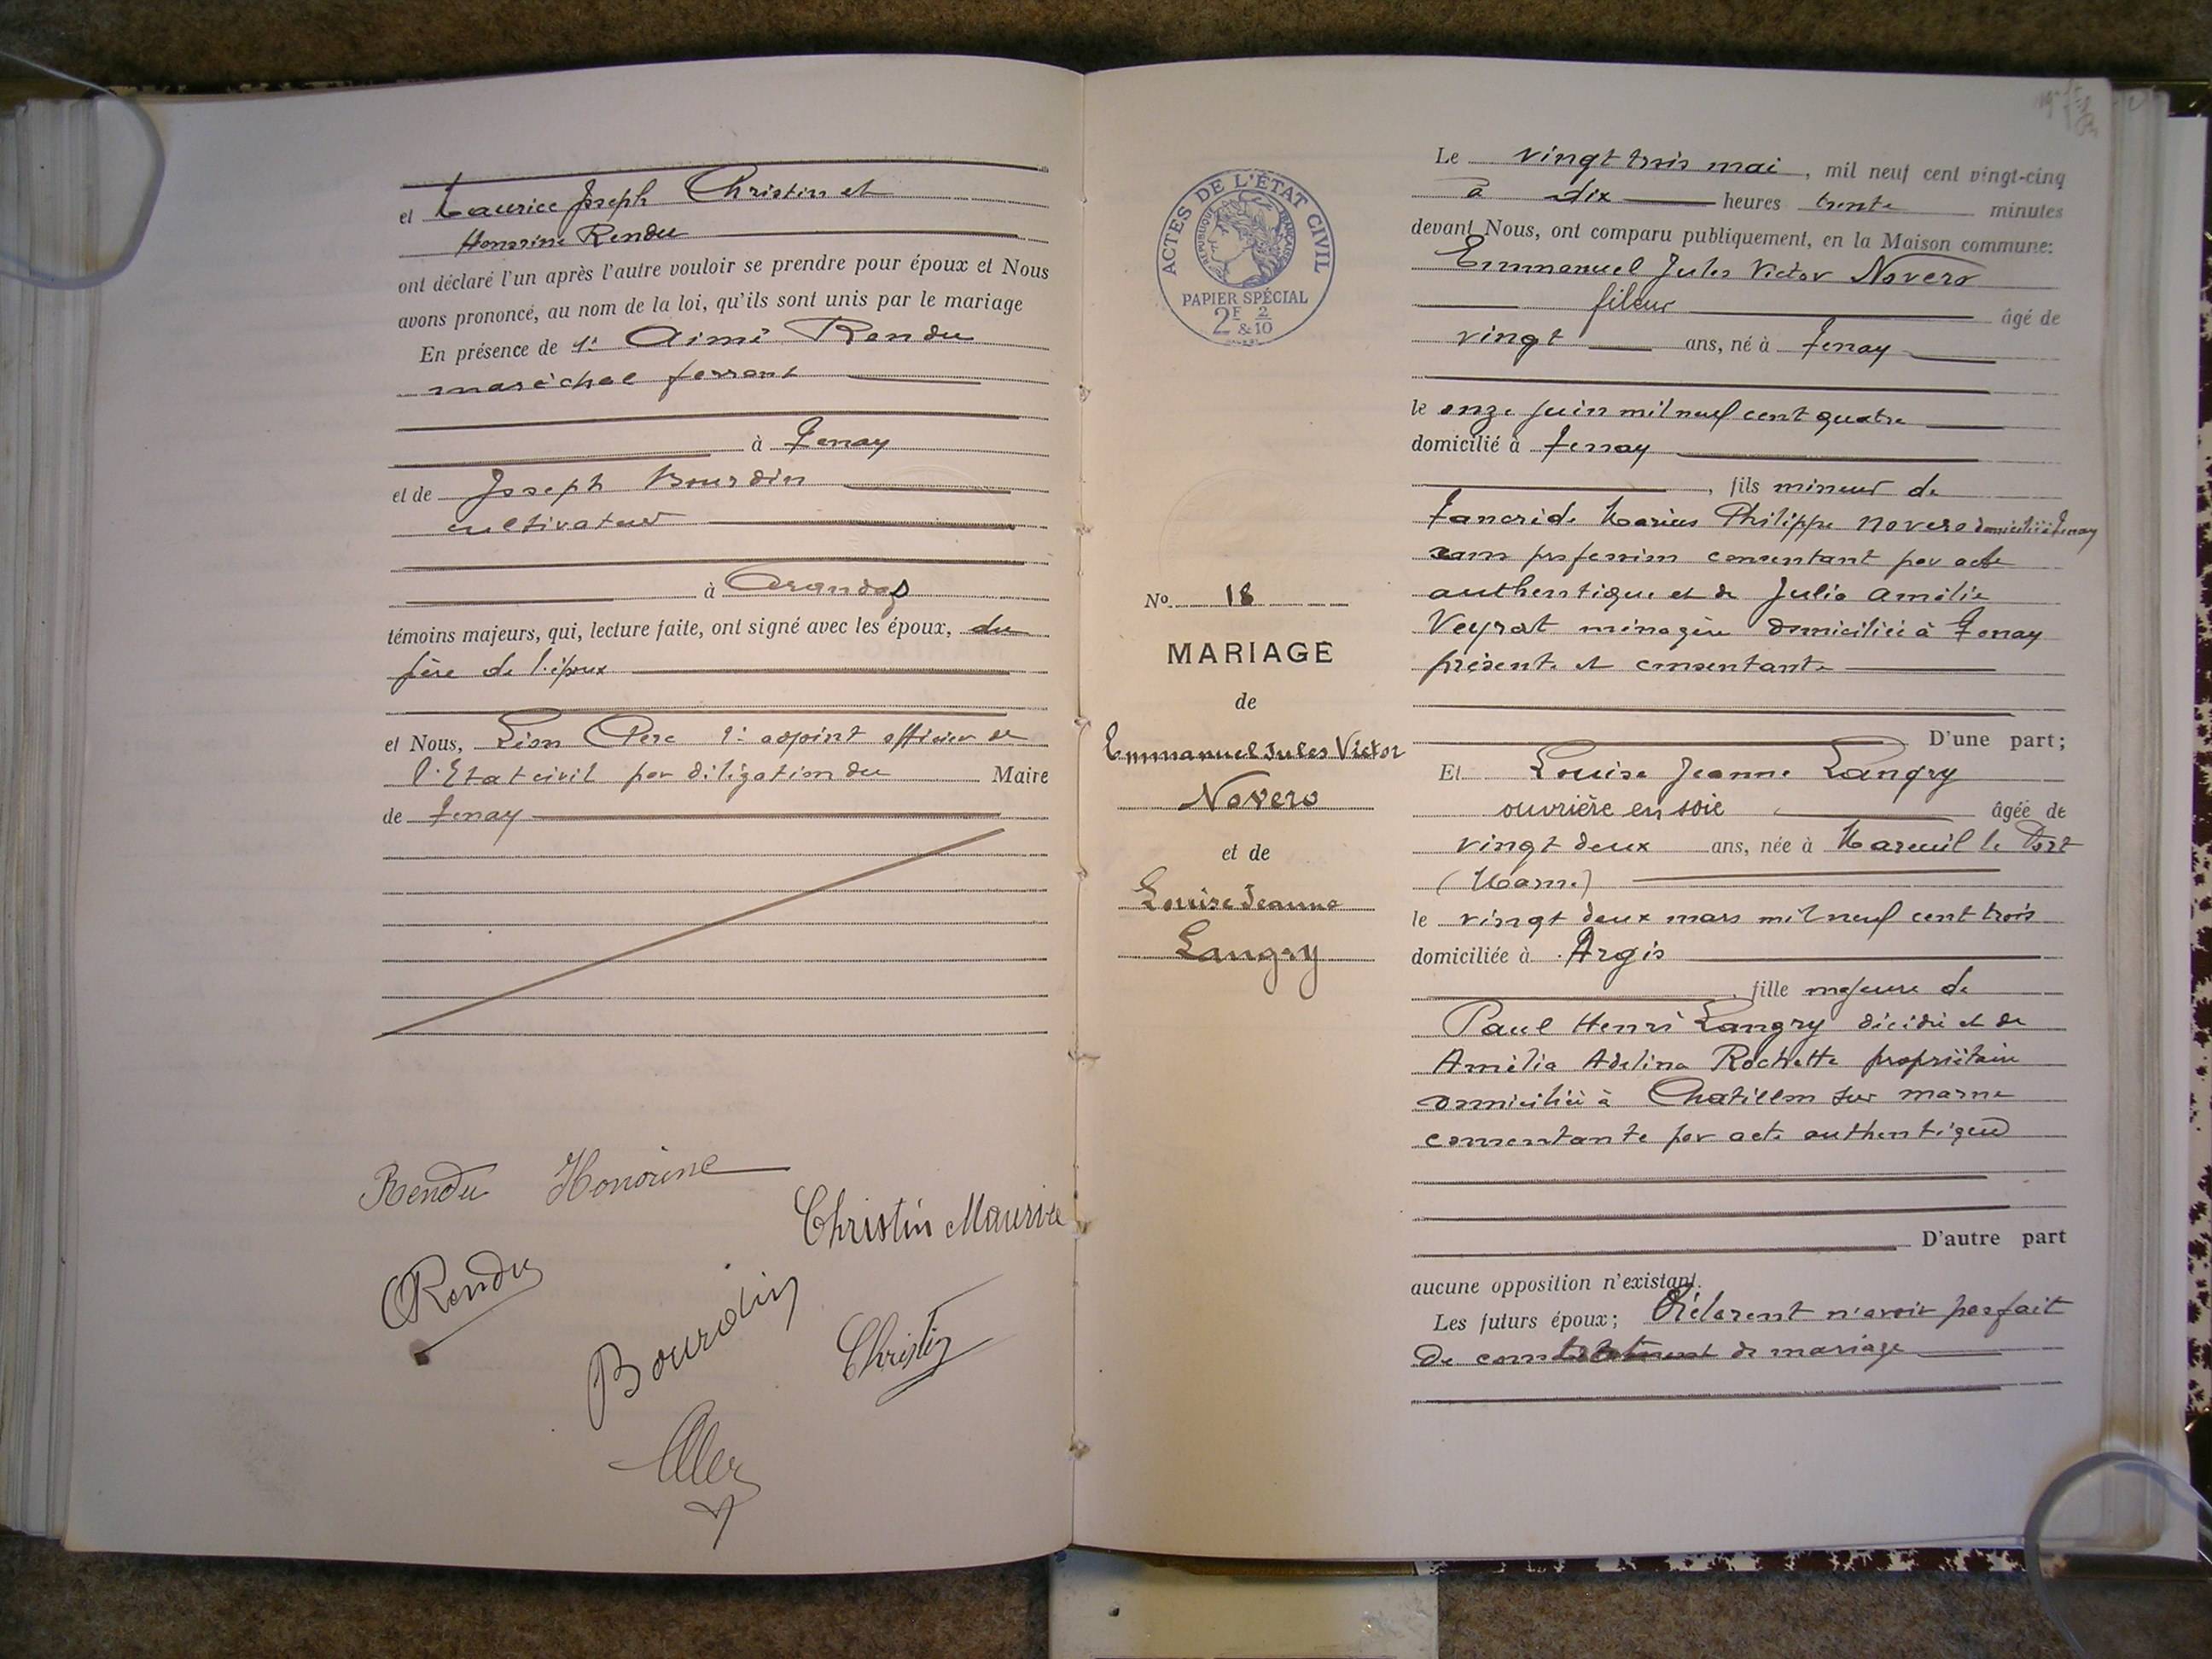 et Maurice Joseph Christin et
Honorine Rendu
ont déclaré l'un après l'autre vouloir se prendre pour époux et Nous
avons prononcé, au nom de la loi, qu'ils sont unis par le mariage
En présence de 1º Aimé Rendu
maréchal ferrant
à Tenay
et de Joseph Bourdin
cultivateur
à Arandas
témoins majeurs, qui, lecture faite, ont signé avec les époux, du
père de l'époux
et Nous, Léon 1er adjoint officier de
l'Etat civil par délégation du Maire
de Tenay
Rendu Honorine
Christin Maurice
Rendu
Bourdin
Christin
ACTES DE L'ÉTAT CIVIL
RÉPUBLIQUE FRANÇAISE
PAPIER SPÉCIAL
2F & 2/10
No 18
MARIAGE
de
Emmanuel Jules Victor
Novero
et de
Louise Jeanne
Langry
Le vingt trois mai, mil neuf cent vingt-cinq
à dix heures trente minutes
devant Nous, ont comparu publiquement, en la Maison commune:
Emmanuel Jules Victor Novero
fileur âgé de
vingt ans, né à Tenay
le onze juin mil neuf cent quatre
domicilié à Tenay
, fils mineur de
Tancride Marius Philippe Novero domicilié à Tenay
sans profession consentant par acte
authentique et de Julie Amélie
Veyrat ménagère domiciliée à Tenay
présente et consentante
D'une part;
Et Louise Jeanne Langry
ouvrière en soie âgée de
vingt deux ans, née à Mareuil le Port
(Marne)
le vingt deux mars mil neuf cent trois
domiciliée à Argis
, fille majeure de
Paul Henri Langry décédé et de
Amélia Adelina Rochette propriétaire
domiciliée à Chatillon sur marne
consentante par acte authentique
D'autre part
aucune opposition n'existant.
Les futurs époux; Déclarent n'avoir pas fait
de de mariage